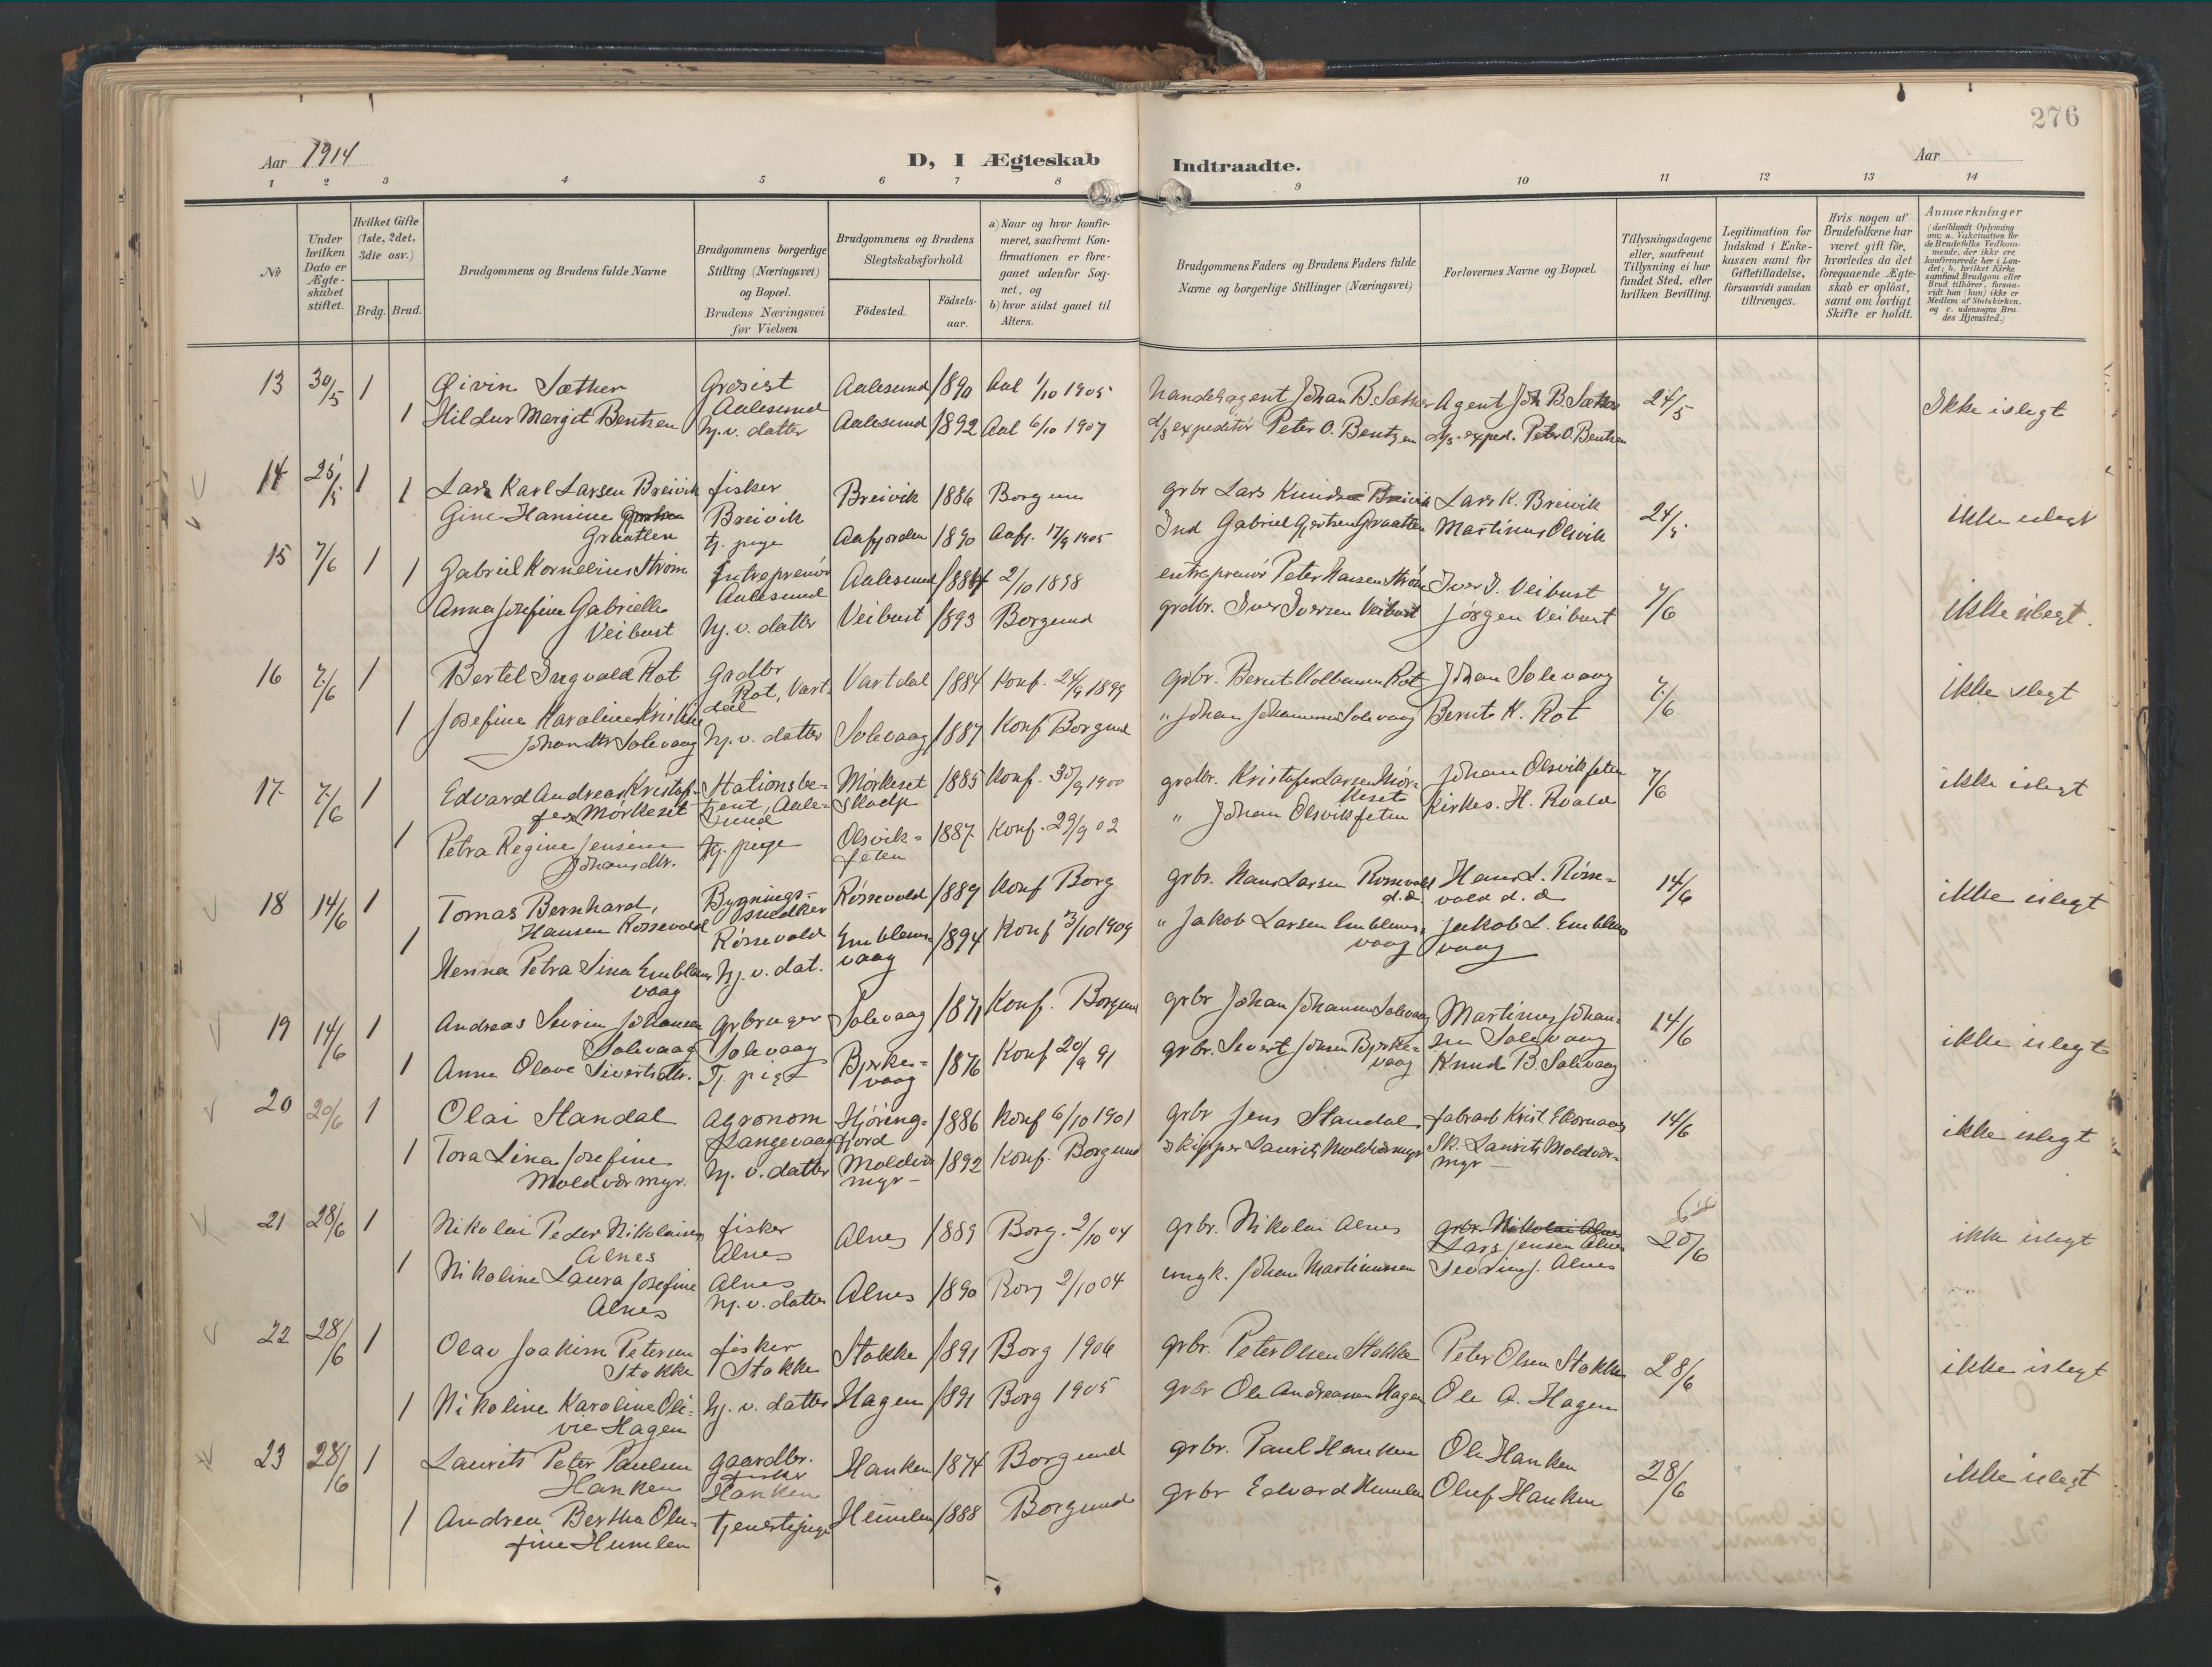 276
Aar 1914
D, I Ægteskab Indtraadte.
Aar
1 2 3 4 5 6 7 8 9 10 11 12 13 14
No
Under hvilken Dato er Ægteskabet stiftet.
Hvilket Gifte (1ste, 2det, 3die osv.)
Brdg. Brud.
Brudgommens og Brudens fulde Navne
Brudgommens borgerlige Stilling (Næringsvei) og Bopæl. Brudens Næringsvei før Vielsen
Brudgommens og Brudens Slegtskabsforhold
Fødested.
Fødselsaar.
a) Naar og hvor konfirmeret, saafremt Konfirmationen er foregaaet udenfor Sognet, og
b) hvor sidst gaaet til Alters.
Brudgommens Faders og Brudens Faders fulde Navne og borgerlige Stillinger (Næringsvei)
Forlovernes Navne og Bopæl.
Tillysningsdagene eller, saafremt Tillysning ei har fundet Sted, efter hvilken Bevilling.
Legitimation for Indskud i Enkekassen samt for Giftetilladelse, forsaavidt saadan tiltrænges.
Hvis nogen af Brudefolkene har været gift før, hvorledes da det foregaaende Ægteskab er opløst, samt om lovligt Skifte er holdt.
Anmærkninger
(deriblandt Oplysning om: a. Vakcination for de Brudefolks Vedkommende, der ikke ere konfirmerede her i Landet; b. hvilket Kirkesamfund Brudgom eller Brud tilhører, forsaavidt han (hun) ikke er Medlem af Statskirken. og c. udensogns Brudes Hjemsted.)
13 30/5 1 Øivin Sæther Grosist Aalesund Aalesund 1890 Aal 1/10 1905 handelsagent Johan B. Sæther Agent Joh B. Sæther 24/5 Ikke i slegt
1 Hildur Margit Bentzen hj. v. datter Aalesund 1892 Aal 6/10 1907 d/s expeditör Peter O. Bentzen d/s. exped. Peter O. Bentzen
14 25/5 1 1 Lars Karl Larsen Breivik fisker Breivik Breivik 1886 Borgund grbr Lars Knudsen Breivik Lars K. Breivik 24/5 ikke i slegt
Gine Hansine Graatlen tj. pige Aafjorden 1890 Aafj. 17/9 1905 Ind Gabriel Gjertsen Graatlen Martinus Olsvik
15 7/6 1 1 Gabriel Kornelius Strøm Entreprenör Aalesund Aalesund 1884 2/10 1898 entreprenör Peter Hansen Strøm Iver I. Veibust 7/6 ikke i slegt.
Anna Josefine Gabrielle Veibust hj. v. datter Veibust 1893 Borgund grdbr. Iver Iversen Veibust Jörgen Veibust
16 7/6 1 Bertel Ingvald Rot Grdbr Rot, Vartdal Vartdal 1884 Konf. 24/9 1899 grbr. Bernt Kolbensen Rot Johan Solevaag 7/6 ikke slegt
1 Josefine Karoline Kristine Johansdtr Solevaag hj. v. datter Solevaag 1887 Konf Borgund " Johan Johannesen Solevaag Bernt K. Rot
17 7/6 1 Edvard Andreas Kristofersen Mörkeset Stationsbetjent, Aalesund Mörkeset Skodje 1885 Konf. 30/9 1900 grdbr. Kristofer Larsen Mörkeset Johan Olsvikfeten 7/6 ikke i slegt
1 Petra Regine Jensine Johansdtr. tj. pige Olsvikfeten 1887 Konf. 29/9 02 " Johan Olsvikfeten Kirkes. H. Roald
18 14/6 1 Tomas Bernhard Hansen Rörsevold Bygningssnedker Rörsevold Rörsevold 1889 Konf Borg grbr. Hans Larsen Rörsevold d. æ. Hans L. Rörsevold d. æ 14/6 ikke i slegt
1 Henna Petra Lina Emblemsvaag hj. v. dat. Emblemsvaag 1894 Konf 3/10 1909 " Jakob Larsen Emblemsvaag Jakob L. Emblemsvaag
19 14/6 1 Andreas Severin Johansen Solevaag Grbruger Solevaag Solevaag 1871 Konf. Borgund grbr Johan Johansen Solevaag Martinus Johansen Solevaag 14/6 ikke i slegt
1 Anne Olave Sivertsdtr. Tj. pige Byrkevaag 1876 Konf 20/9 91 grbr. Sivert Jonsen Byrkevaag Knud B. Solevaag
20 20/6 1 Olai Standal agronom Langevaag Hjöringfjord 1886 Konf 6/10 1901 grbr Jens Standal fabrarb Krist. Ekornaas 14/6 ikke i slegt
1 Tora Lina Josefine Moldværmyr. hj. v. datter Moldværmyr 1892 Konf. Borgund skipper Laurits Moldværmyr Sk. Laurits Moldværmyr
21 28/6 1 Nikolai Peder Nikolaisen Alnes fisker Alnes Alnes 1889 Borg. 2/10 04 grbr. Nikolai Alnes grbr. Nikolai Alnes Lars Jensen Alnes 20/6 ikke i slegt
1 Nikoline Laura Josefine Alnes Alnes hj. v. datter Alnes 1890 Borg 2/10 04 ungk. Johan Martinussen Severin J. Alnes
22 28/6 1 Olav Joakim Petersen Stokke fisker Stokke Stokke 1891 Borg 1906 grbr. Peter Olsen Stokke Peter Olsen Stokke 28/6 ikke i slegt
1 Nikoline Karoline Olivie Hagen hj. v. datter Hagen 1891 Borg 1905 grbr Ole Andreassen Hagen Ole A. Hagen
23 28/6 1 Laurits Peter Paulsen Hanken gaardbr. fisker Hanken Hanken 1874 Borgund grbr. Paul Hanken Ole Hanken 28/6 ikke i slegt
1 Andrea Bertha Olufine Humlen Tjenestepige Humlen 1888 Borgund grbr Edvard Humlen Oluf Hanken